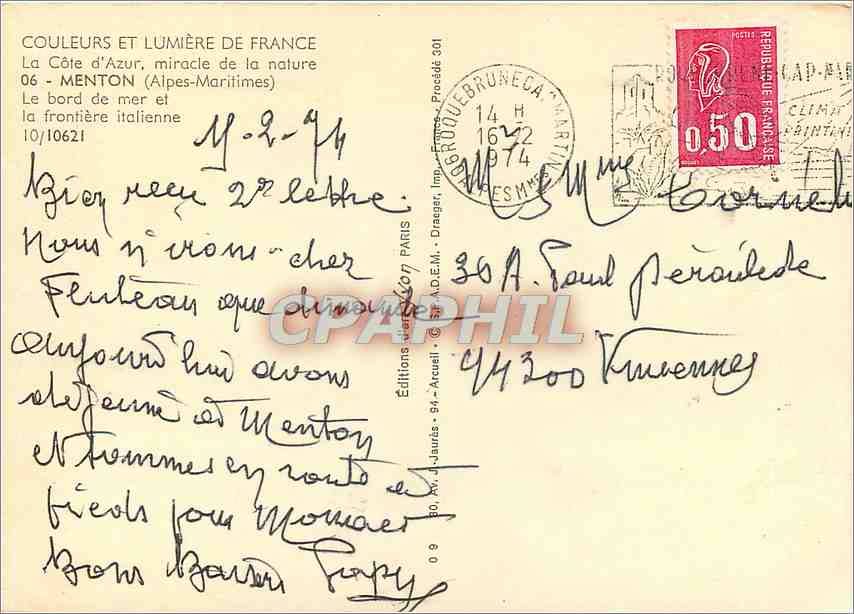 COULEURS ET LUMIÈRE DE FRANCE
La Côte d'Azur, miracle de la nature
06 - MENTON (Alpes-Maritimes)
Le bord de mer et
la frontière italienne
10/10621
Bien reçu 2e lettre.
Nous n'irons chez
que dimanche
aujourd'hui avons
déjeuné à Menton
et sommes en route à
pieds pour Monaco
Bons Baisers Papy
Editions d'art yvon PARIS
09 80, Av. J.-Jaurès - 94-Arcueil - © S.P.A.D.E.M. - Draeger, Imp. - France - Procédé 301
06 ROQUEBRUNE CAP MARTIN
14 H
16-2
1974
ALPES MMES
ROQUEBRUNE-CAP-MARTIN
CLIMAT
PRINTANIER
POSTES
REPUBLIQUE FRANÇAISE
0,50
M & Mme
30 A. Paul Déroulède
94300 Vincennes
CPAPHIL